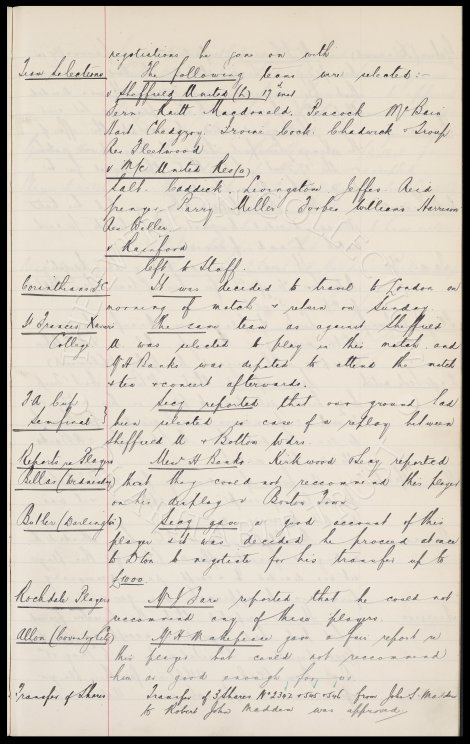 negotiations be gone on with
Team Selections. The following teams were selected:-
v Sheffield United (h) 17th inst
Fern Raitt Macdonald. Peacock McBain
Hart Chedgzoy. Irvine Cock. Chadwick & Troup
Res Fleetwood
v M/c United Res (a)
Salt. Caddick. Livingstone Reid
Parry Miller Forbes Williams Harrison
Res Weller
v Rainford
left to Staff.
Corinthians FC It was decided to travel to London on
morning of match & return on Sunday
St Francis Xavier The same team as against Sheffield
College U was selected to play in this match and
Mr H Banks was deputed to attend the match
& tea & concert afterwards.
FA Cup Secy reported that our ground had
Semifinal } been selected in case of a replay between
Sheffield U & Bolton Wdrs.
Reports re Players Messrs H Banks. Kirkwood & Secy reported
(Wednesday) that they could not recommend this player
on his display v Boston Town
Butler (Darlington) Secy gave a good account of this
player & it was decided he proceed at once
to D'ton to negotiate for his transfer up to
£1000
Rochdale Players Mr J Fare reported that he could not
recommend any of these players.
Allon (Coventry City) Mr A Wakefield gave a fair report re
this player but could not recommend
him as good enough for us.
Transfer of Shares Transfer of 3 Shares No 2392 & 545 & 546 from John S. Madden
to Robert John Madden was approved